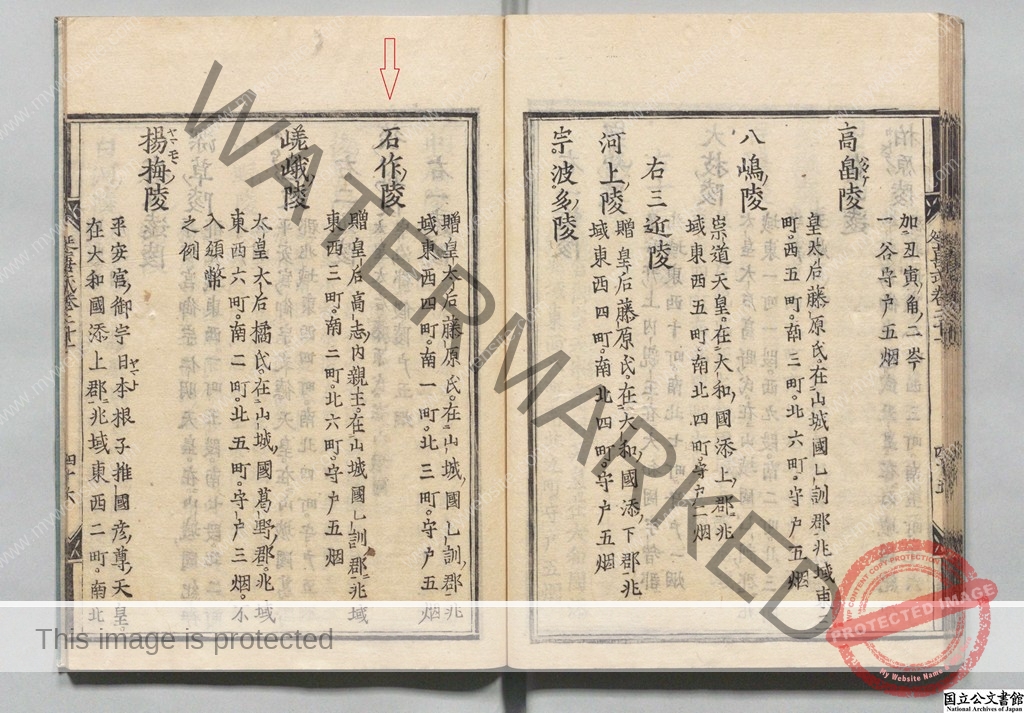 加丑寅角二岑
一谷守戸五烟
高畠陵
皇太后藤原氏在山城國乙訓郡兆域東三
町西五町南三町北六町守戸五烟
八嶋陵
崇道天皇在大和國添上郡兆
域東西五町南北四町守戸二烟
右三近陵
河上陵
贈皇后藤原氏在大和國添下郡兆
域東西四町南北四町守戸五烟
宇波多陵
贈皇太后藤原氏在山城國乙訓郡兆
域東西四町南一町北三町守戸五烟
石作陵
贈皇后高志内親王在山城國乙訓郡兆域
東西三町南二町北六町守戸五烟
嵯峨陵
太皇太后橘氏在山城國葛野郡兆域
東西六町南二町北五町守戸三烟不
入頒幣
之例
揚梅陵
ヤマモヽ
平安宮御宇日本根子推國彦尊天皇
ヤマト
在大和國添上郡兆域東西二町南北
四十六
WATERMARKED
This image is protected
PROTECTED IMAGE
COPYRIGHT PROTECTION
My Website Name
国立公文書館
National Archives of Japan